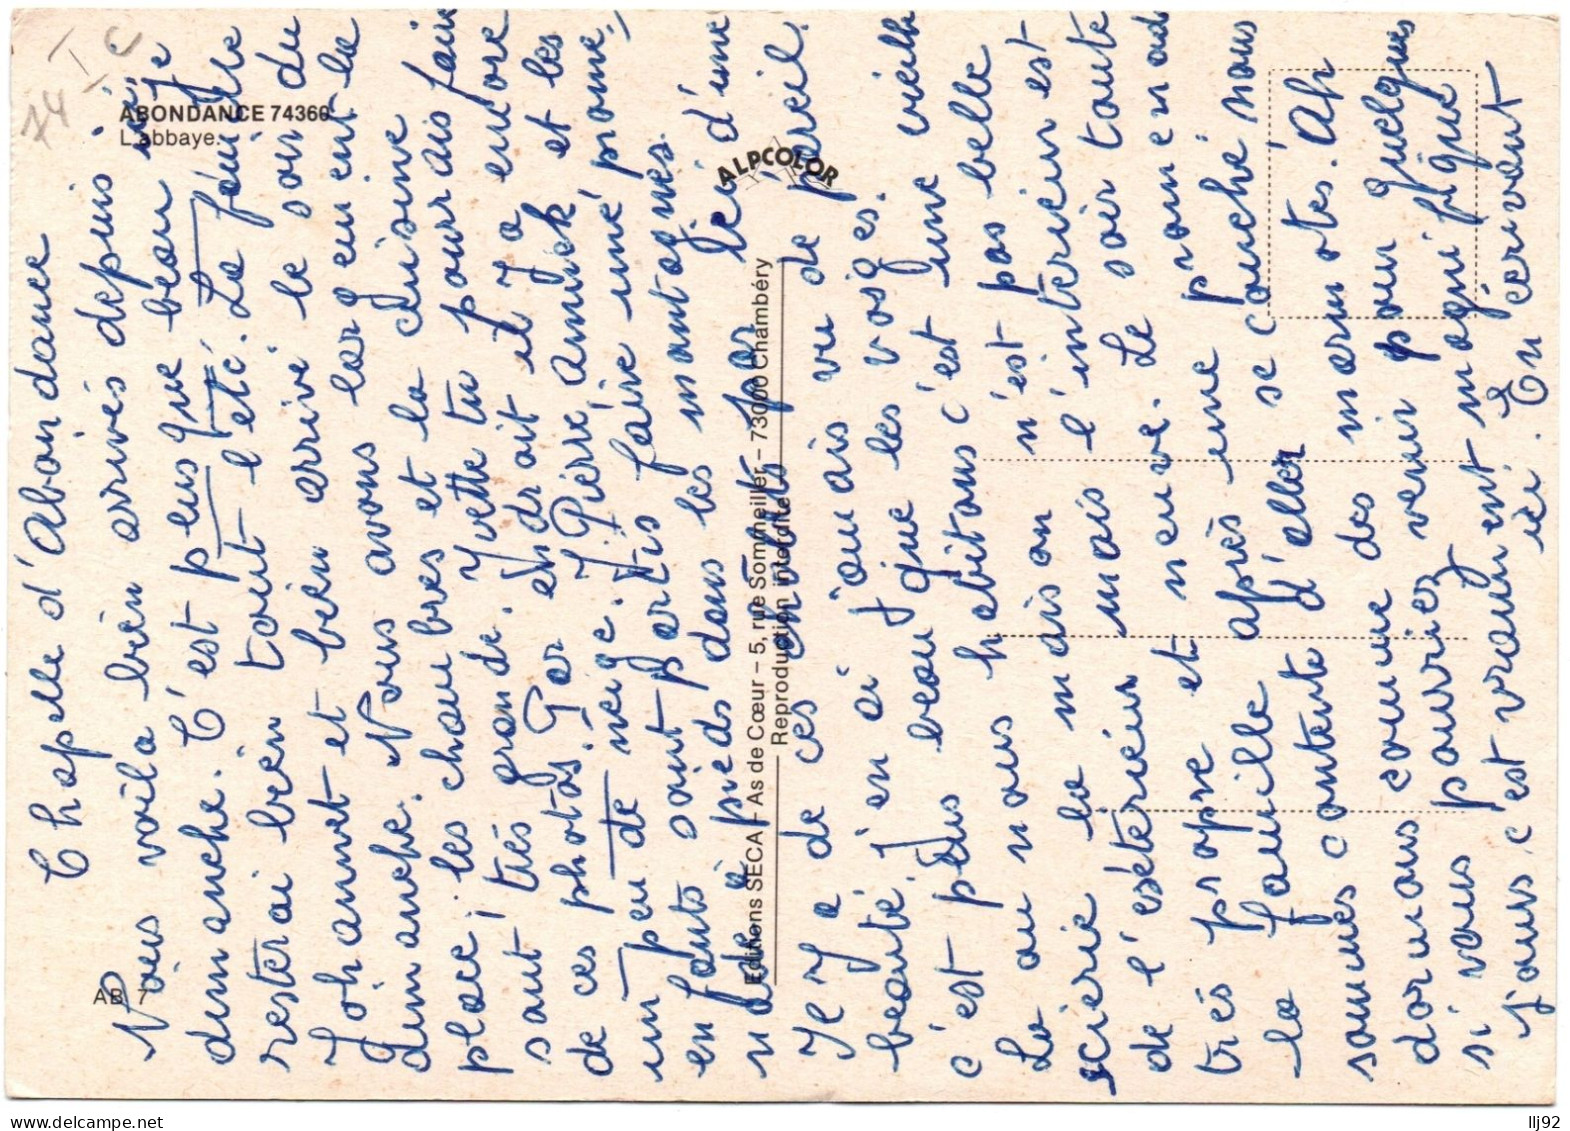 ABONDANCE 74360
L'abbaye.
74 I C
AB 7
ALPCOLOR
Editions SECA – As de Cœur – 5, rue Sommeiller – 73000 Chambéry
Reproduction interdite
Chapelle d'Abondance
Nous voila bien arrivés depuis
dimanche. C'est plus que beau je
resterai bien tout l'eté. La famille
Johannet et bien arrivé le soir du
Dimanche. Nous avons largement la
place les chambres et la cuisine
sont trés grande. Yvette tu pourrais faire
de ces photos. Par endroit il y a encore
un peu de neige. J. Pierre annick et les
enfants sont partis faire une prome
nade à pieds dans les montagnes.
Il y a de ces chalets par ici d'une
beauté j'en ai jamais vu de pareil.
c'est plus beau que les vosges.
La ou nous habitons c'est une vieille
scierie la maison n'est pas belle
de l'extérieur mais l'interieur est
trés propre et neuve. Le soir toute
la famille après une promenade
sommes contente d'aller se couché nous
dormons comme des marmotes. Ah
si vous pourriez venir pour quelques
jours c'est vraiment magnifique
ici. En écrivant